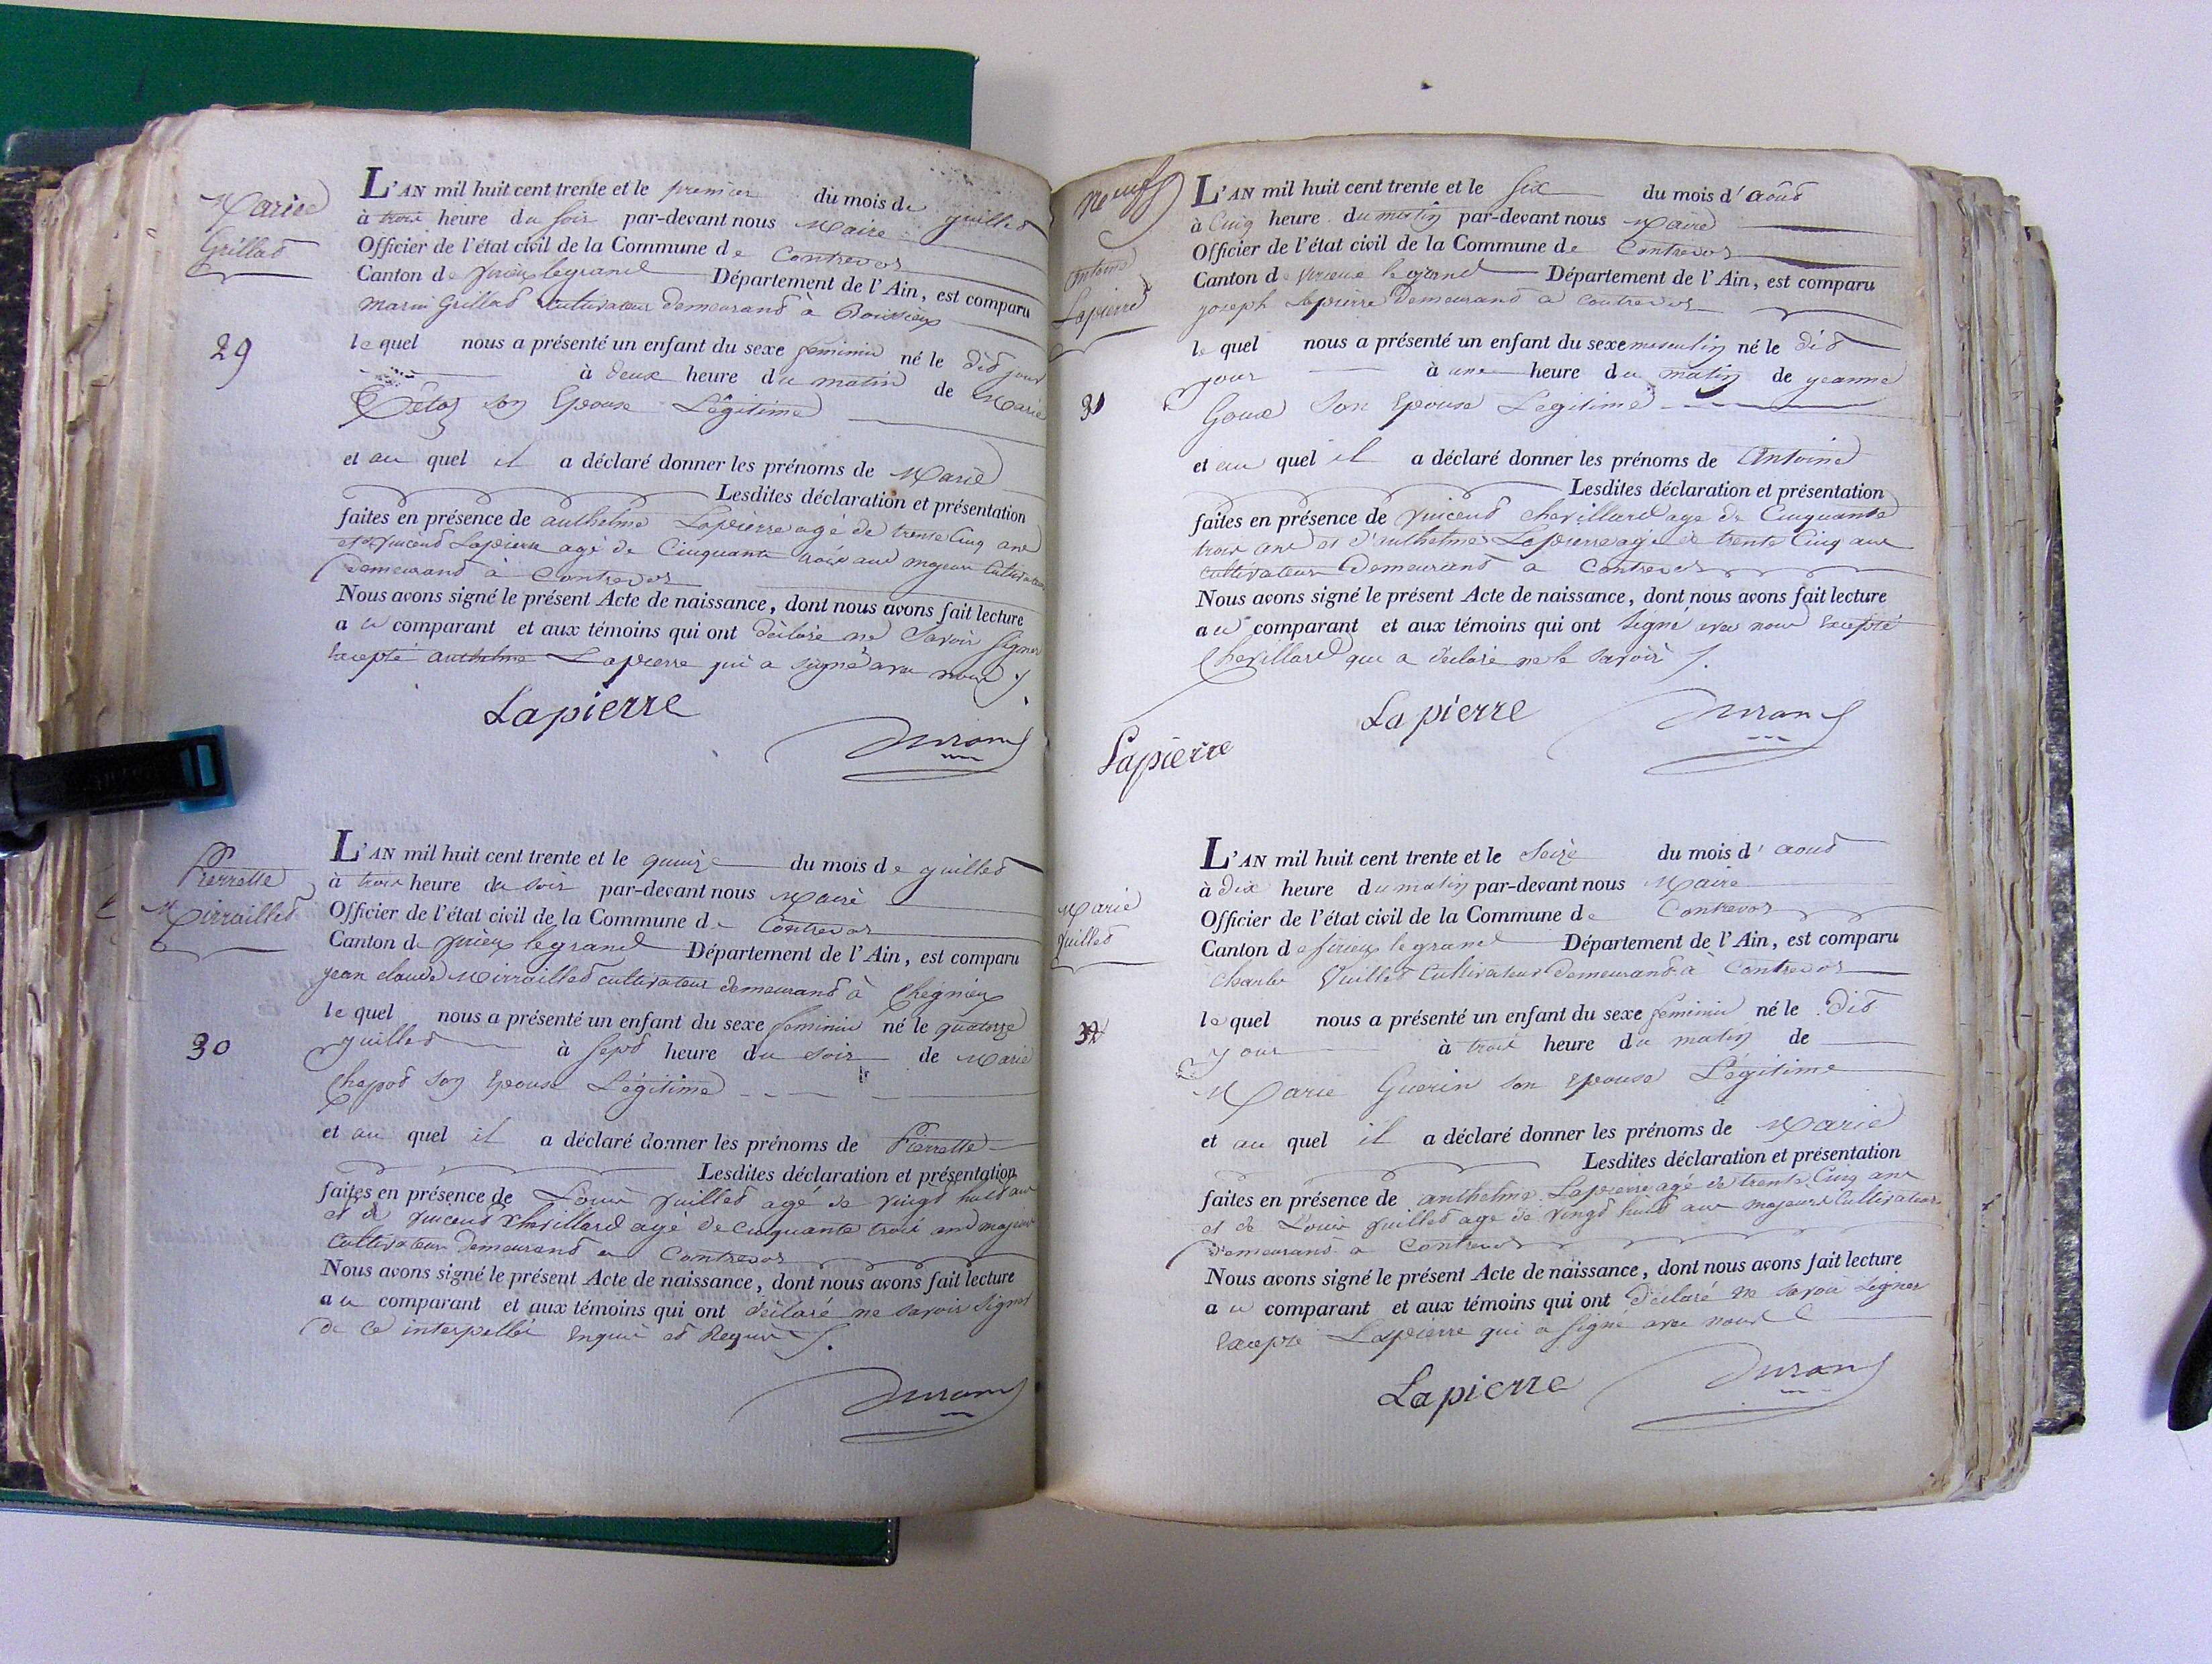 Marie
Grillet
29
L'AN mil huit cent trente et le premier du mois de juillet
à trois heure du soir par-devant nous Maire
Officier de l'état civil de la Commune de Contrevoz
Canton de virieu legrand Département de l'Ain, est comparu
Grillet cultivateur demeurant à
le quel nous a présenté un enfant du sexe feminin né le dit jour
à deux heure du matin de Marie
son Epouse Légitime
et au quel il a déclaré donner les prénoms de Marie
Lesdites déclaration et présentation
faites en présence de anthelme Lapierre agé de trente Cinq ans
et de vincent Lapierre agé de Cinquante trois ans majeurs Cultivateurs
demeurant à Contrevoz
Nous avons signé le présent Acte de naissance, dont nous avons fait lecture
au comparant et aux témoins qui ont déclaré ne Savoir signer
Excepté anthelme Lapierre qui a signé avec nous
Lapierre
Durand
Pierrette
Mirraillet
30
L'AN mil huit cent trente et le quinze du mois de juillet
à trois heure du soir par-devant nous Maire
Officier de l'état civil de la Commune de Contrevoz
Canton de virieu legrand Département de l'Ain, est comparu
jean claude Mirraillet cultivateur demeurant à Cheignieu
le quel nous a présenté un enfant du sexe feminin né le quatorze
juillet à sept heure du soir de Marie
Chapot son Epouse Légitime
et au quel il a déclaré donner les prénoms de Pierrette
Lesdites déclaration et présentation
faites en présence de Louis vuillet agé de vingt huit ans
et de vincent Chevillard agé de cinquante trois ans majeurs
Cultivateurs demeurant a Contrevoz
Nous avons signé le présent Acte de naissance, dont nous avons fait lecture
au comparant et aux témoins qui ont déclaré ne savoir signer
de ce interpellés Enquis et Requis
Durand
neuf
Antoine
Lapierre
31
L'AN mil huit cent trente et le six du mois d'août
à Cinq heure du matin par-devant nous Maire
Officier de l'état civil de la Commune de Contrevoz
Canton de virieu le grand Département de l'Ain, est comparu
joseph Lapierre demeurant à contrevoz
le quel nous a présenté un enfant du sexe masculin né le dit
jour à une heure du matin de jeanne
Goux son Epouse Légitime
et au quel il a déclaré donner les prénoms de Antoine
Lesdites déclaration et présentation
faites en présence de vincent chevillard age de Cinquante
trois ans et d'anthelme Lapierre agé de trente Cinq ans
cultivateurs demeurant à Contrevoz
Nous avons signé le présent Acte de naissance, dont nous avons fait lecture
au comparant et aux témoins qui ont signé avec nous Excepté
Chevillard qui a déclaré ne le savoir
Lapierre
La pierre
Durand
Marie
vuillet
32
L'AN mil huit cent trente et le Seize du mois d'aout
à dix heure du matin par-devant nous Maire
Officier de l'état civil de la Commune de Contrevoz
Canton de virieu le grand Département de l'Ain, est comparu
Charles Vuillet Cultivateur demeurant à Contrevoz
le quel nous a présenté un enfant du sexe feminin né le dit
jour à trois heure du matin de
Marie Guerin son Epouse Légitime
et au quel il a déclaré donner les prénoms de Marie
Lesdites déclaration et présentation
faites en présence de anthelme Lapierre agé de trente Cinq ans
et de Louis vuillet agé de vingt huit ans majeurs Cultivateurs
demeurant à Contrevoz
Nous avons signé le présent Acte de naissance, dont nous avons fait lecture
au comparant et aux témoins qui ont déclaré ne savoir signer
Excepté Lapierre qui a signé avec nous
Lapierre
Durand